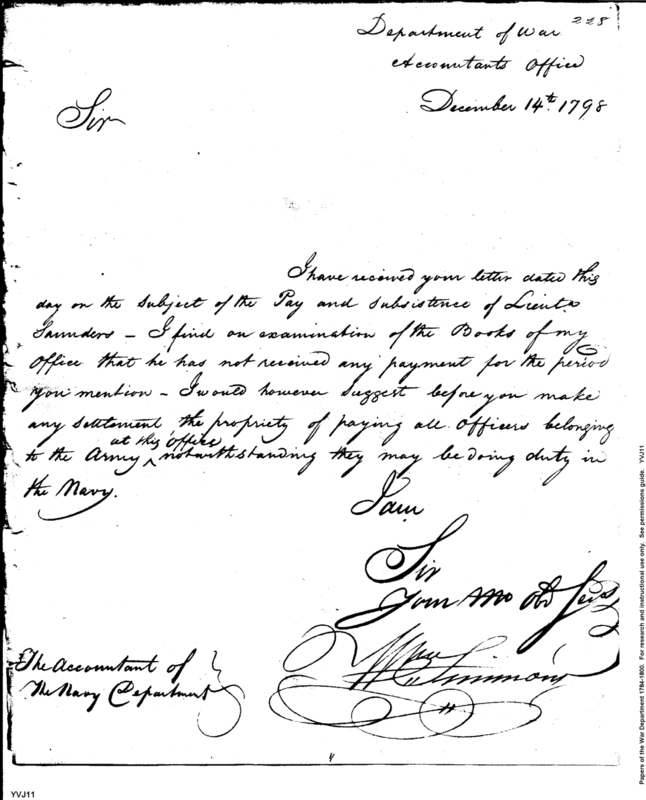 228
Department of War
Accountants Office
December 14th. 1798
Sir
I have received your letter dated this
day on the subject of the Pay and subsistence of Lieut.
Saunders - I find on examination of the Books of my
Office that he has not received any payment for the period
you mention - I would however suggest before you make
any settlement the propriety of paying all Officers belonging
at this Office
to the Army ^ notwithstanding they may be doing duty in
the Navy.
I am
Sir
Your Mo Obd Serv
Wm Simmons
The Accountant of
The Navy Department
YVJ11
Papers of the War Department 1784-1800. For research and instructional use only. See permissions guide. YVJ11